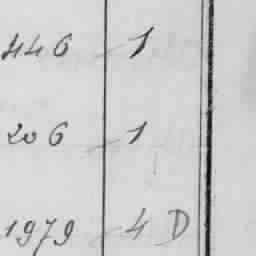 446 1
206 1
1979 4 D